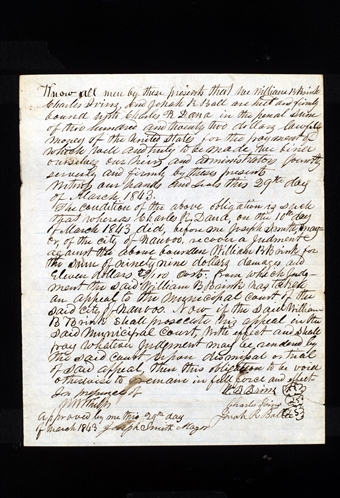 Know all men by these presents that we William B Brink
Charles Ivins, and Jonah R Ball are held and firmly
bound unto Charles R Dana in the penal sum
of two hundred and twenty two dollars lawful
money of the United States for the payment of
which well and truly to be made we bind
ourselves our heirs and administrators jointly
severally and firmly by these presents
Witness our hands and seals this 29th day
of March 1843.
The condition of the above obligation is such
that whereas Charles R. Dana, on the 10th day
of March 1843 did, before me Joseph Smith mayor
of the city of Nauvoo, recover a Judgment
against the above bounden William B Brink for
the sum of ninety nine dollars damages and
Eleven dollars cost. from which Judg-
ment the said William B Brink has taken
an appeal to the Municipal Court of the
said City of Nauvoo. Now if the said William
B Brink shall prosecute his appeal in the
said Municipal Court with effect and shall
pay whatever Judgment may be rendered by
the said court upon dismissal or trial
of said appeal, then this obligation to be void
otherwise to remain in full force and effect
In presence of
W. B. Brink
Charles Ivins
Approved by me this day
Jonah R Ball
of March 1843 Joseph Smith Mayor